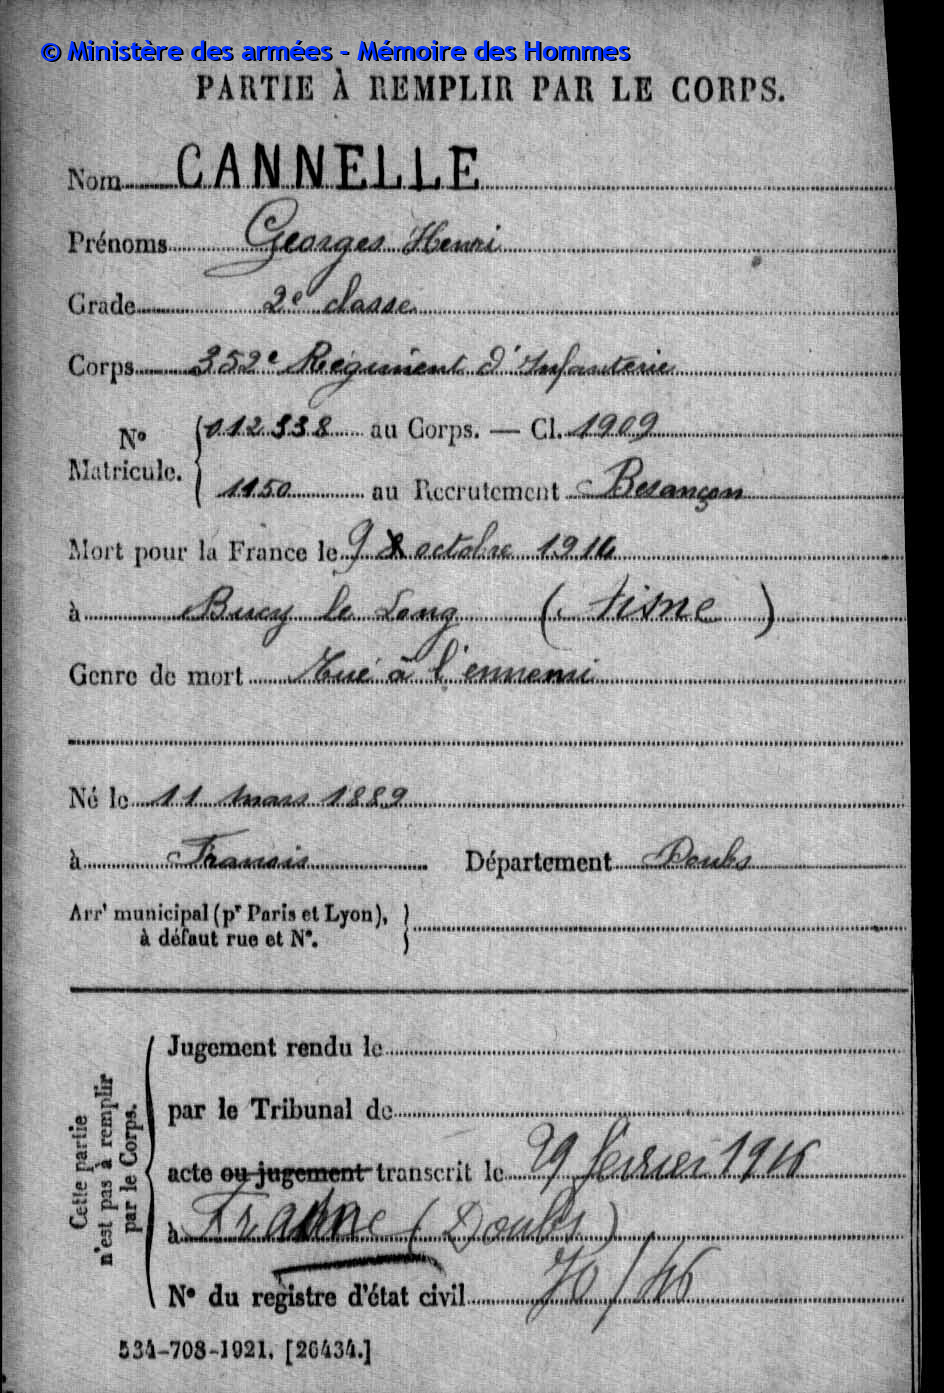 © Ministère des armées - Mémoire des Hommes
PARTIE À REMPLIR PAR LE CORPS.
Nom CANNELLE
Prénoms Georges Henri
Grade 2e classe
Corps 352e Régiment d'Infanterie
No Matricule. 012338 au Corps. — Cl. 1909
1150 au Recrutement Besançon
Mort pour la France le 9 octobre 1914
à Bucy le Long (Aisne)
Genre de mort Tué à l'ennemi
Né le 11 mars 1889
à Franois Département Doubs
Arrt municipal (pr Paris et Lyon),
à défaut rue et No.
Cette partie
n'est pas à remplir
par le Corps.
Jugement rendu le
par le Tribunal de
acte ou jugement transcrit le 29 février 1916
à (Doubs)
No du registre d'état civil 70/46
534-708-1921. [26434.]